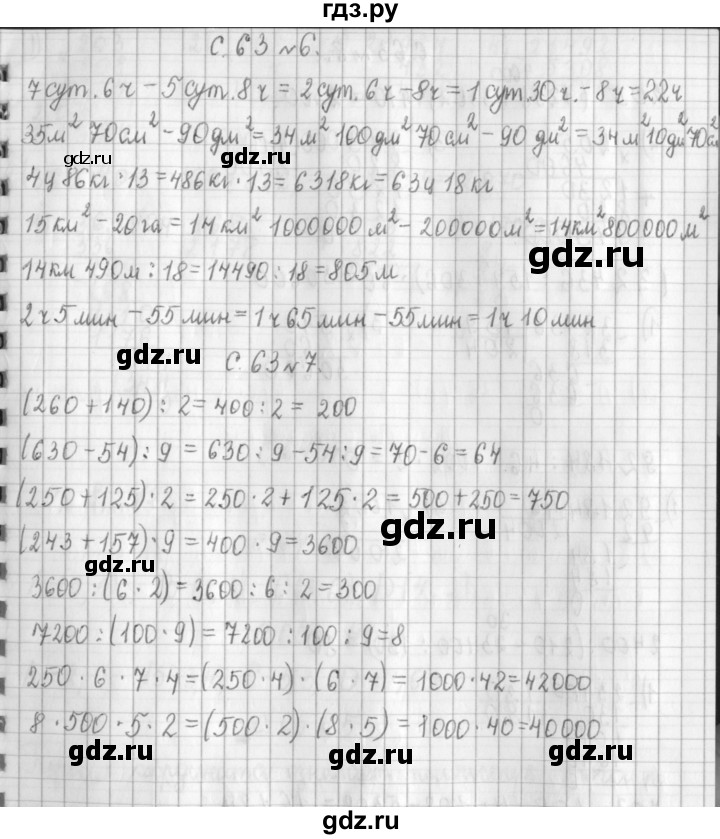 гдз.ру
с. 63 №6.
7 сут. 6 ч − 5 сут. 8 ч = 2 сут. 6 ч − 8 ч = 1 сут. 30 ч. − 8 ч = 22 ч
35 м² 70 см² − 90 дм² = 34 м² 100 дм² 70 см² − 90 дм² = 34 м² 10 дм² 70 см
gdz.ru gdz.ru
4 ц 86 кг · 13 = 486 кг · 13 = 6318 кг = 63 ц 18 кг
15 км² − 20 га = 14 км² 1000000 м² − 200000 м² = 14 км² 800000 м²
gdz.ru
14 км 490 м : 18 = 14490 : 18 = 805 м
2 ч 5 мин − 55 мин = 1 ч 65 мин − 55 мин = 1 ч 10 мин
gdz.ru
с. 63 №7.
gdz.ru
(260 + 140) : 2 = 400 : 2 = 200
(630 − 54) : 9 = 630 : 9 − 54 : 9 = 70 − 6 = 64
(250 + 125) · 2 = 250 · 2 + 125 · 2 = 500 + 250 = 750
gdz.ru
(243 + 157) · 9 = 400 · 9 = 3600
gdz.ru
3600 : (6 · 2) = 3600 : 6 : 2 = 300
7200 : (100 · 9) = 7200 : 100 : 9 = 8
250 · 6 · 7 · 4 = (250 · 4) · (6 · 7) = 1000 · 42 = 42000
8 · 500 · 5 · 2 = (500 · 2) · (8 · 5) = 1000 · 40 = 40000
gdz.ru gdz.ru gdz.ru